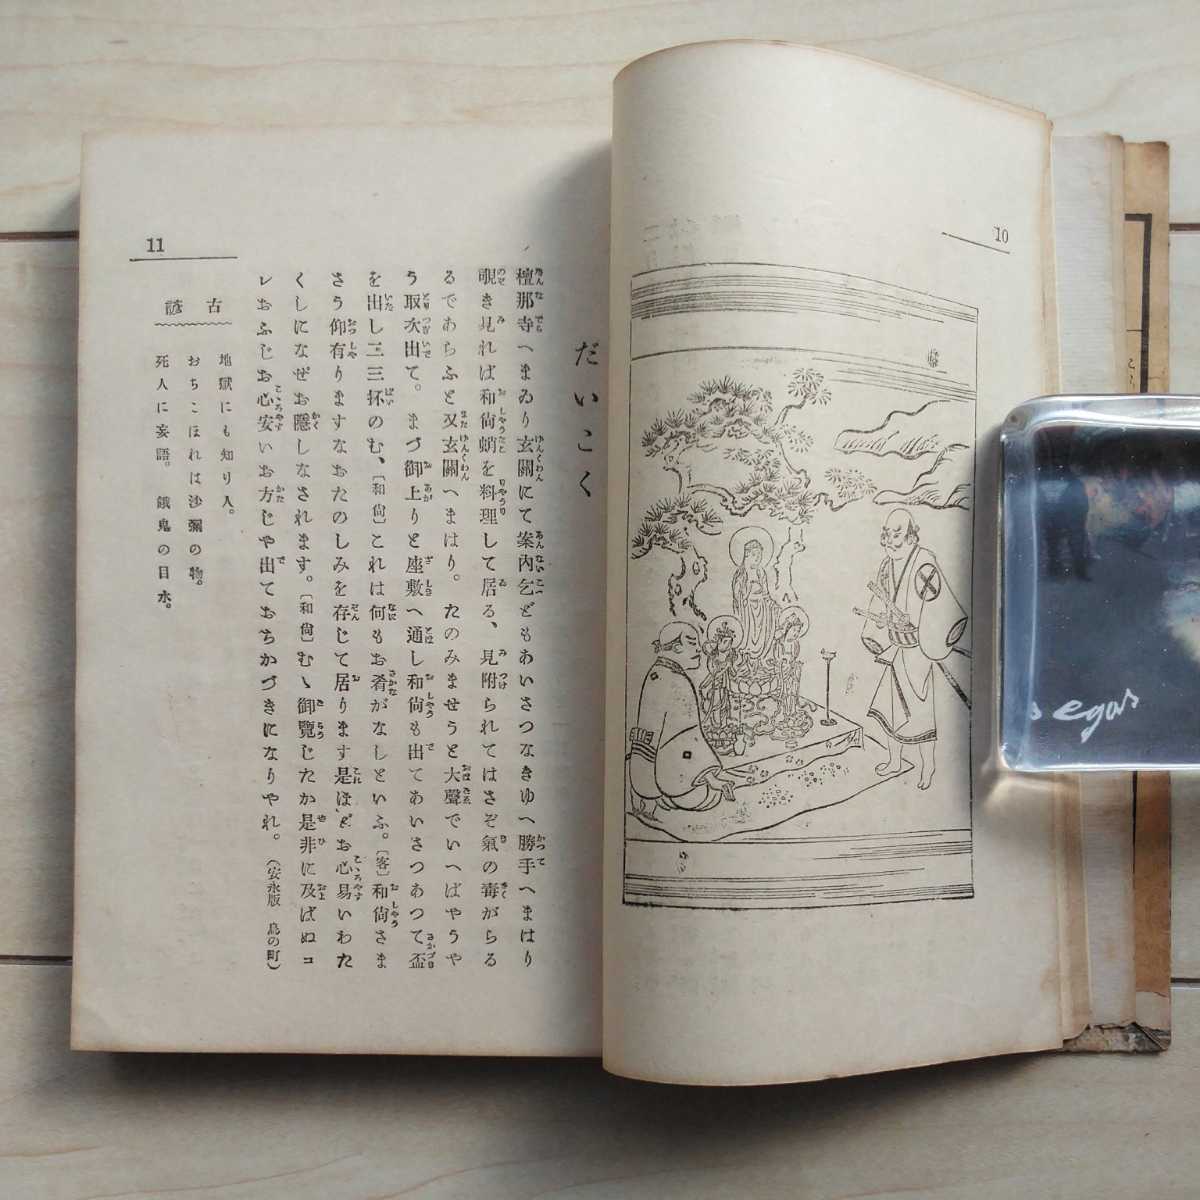 10
だいこく
檀那寺へまゐり玄關にて案內乞どもあいさつなきゆへ勝手へまはり
覗き見れば和尙蛸を料理して居る、見附られてはさぞ氣の毒がらる
るであらふと又玄關へまはり。たのみませうと大聲でいへばやうや
う取次出て。まづ御上りと座敷へ通し和尙も出てあいさつあつて盃
を出し二三杯のむ、〔和尙〕これは何もお肴がなしといふ。〔客〕和尙さま
さう仰有りますなおたのしみを存じて居ります是ほどお心易いわた
くしになぜお隱しなされます。〔和尙〕むゝ御覽じたか是非に及ばぬコ
レおふじお心安いお方じや出ておちかづきになりやれ。(安永版 鳥の町)
古諺
地獄にも知り人。
おちこぼれは沙彌の物。
死人に妄語。 餓鬼の目水。
11
egas